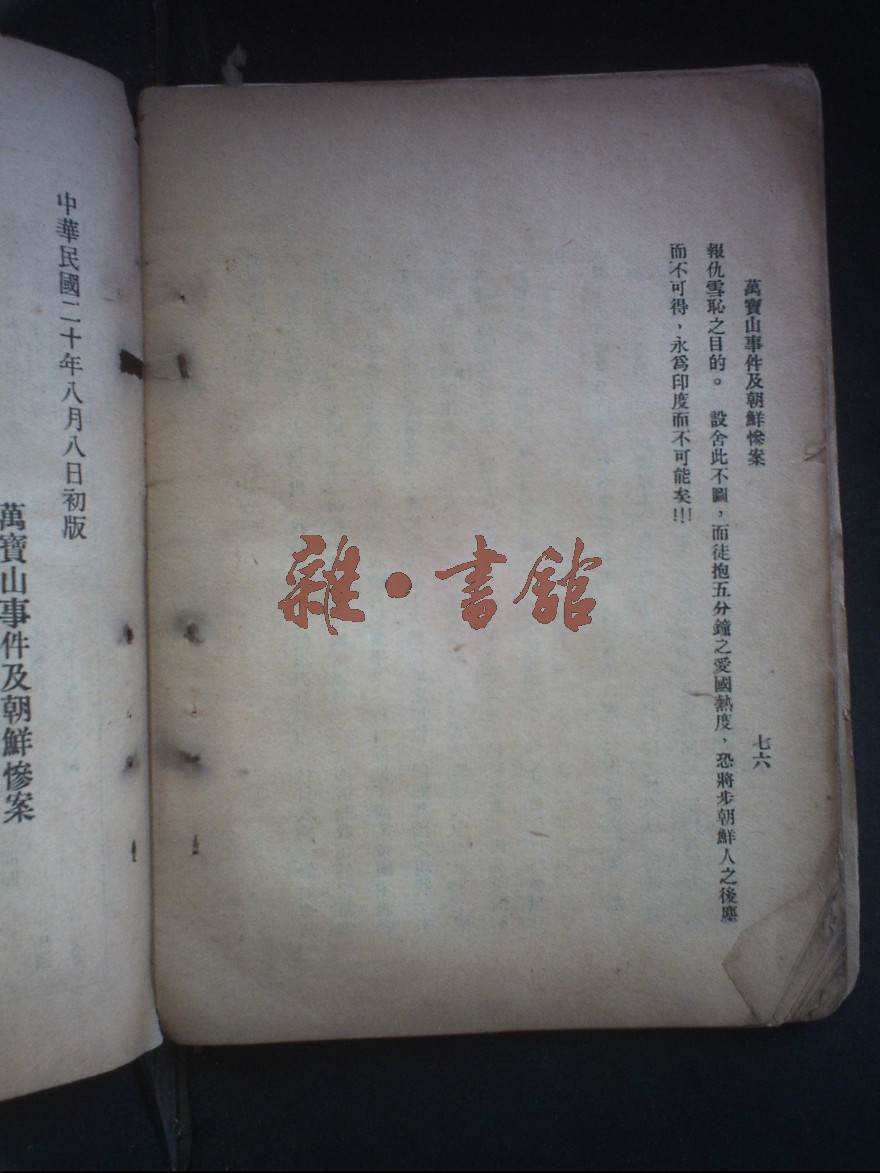 萬寶山事件及朝鮮慘案
七六
報仇雪恥之目的。 設舍此不圖，而徒抱五分鐘之愛國熱度，恐將步朝鮮人之後塵
而不可得，永爲印度而不可能矣!!!
中華民國二十年八月八日初版
萬寶山事件及朝鮮慘案
雜·書館